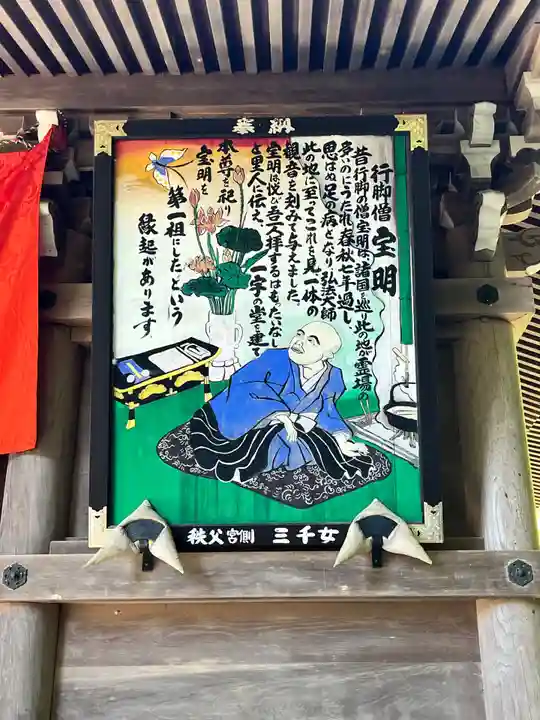 奉納
行脚僧 宝明
昔行脚の僧宝明は、諸国を巡り此の地が霊場の
多いのにうたれ春秋七年過し、
思はぬ足の病となり弘法大師
此の地に至ってこれを見一体の
観音を刻みて与えました。
宝明は悦び吾一人拝するはもったいなし
と里人に伝え、一宇の堂を建て
本尊を祀り
宝明を
第一祖にしたという
縁起があります
秩父宮側 三千女